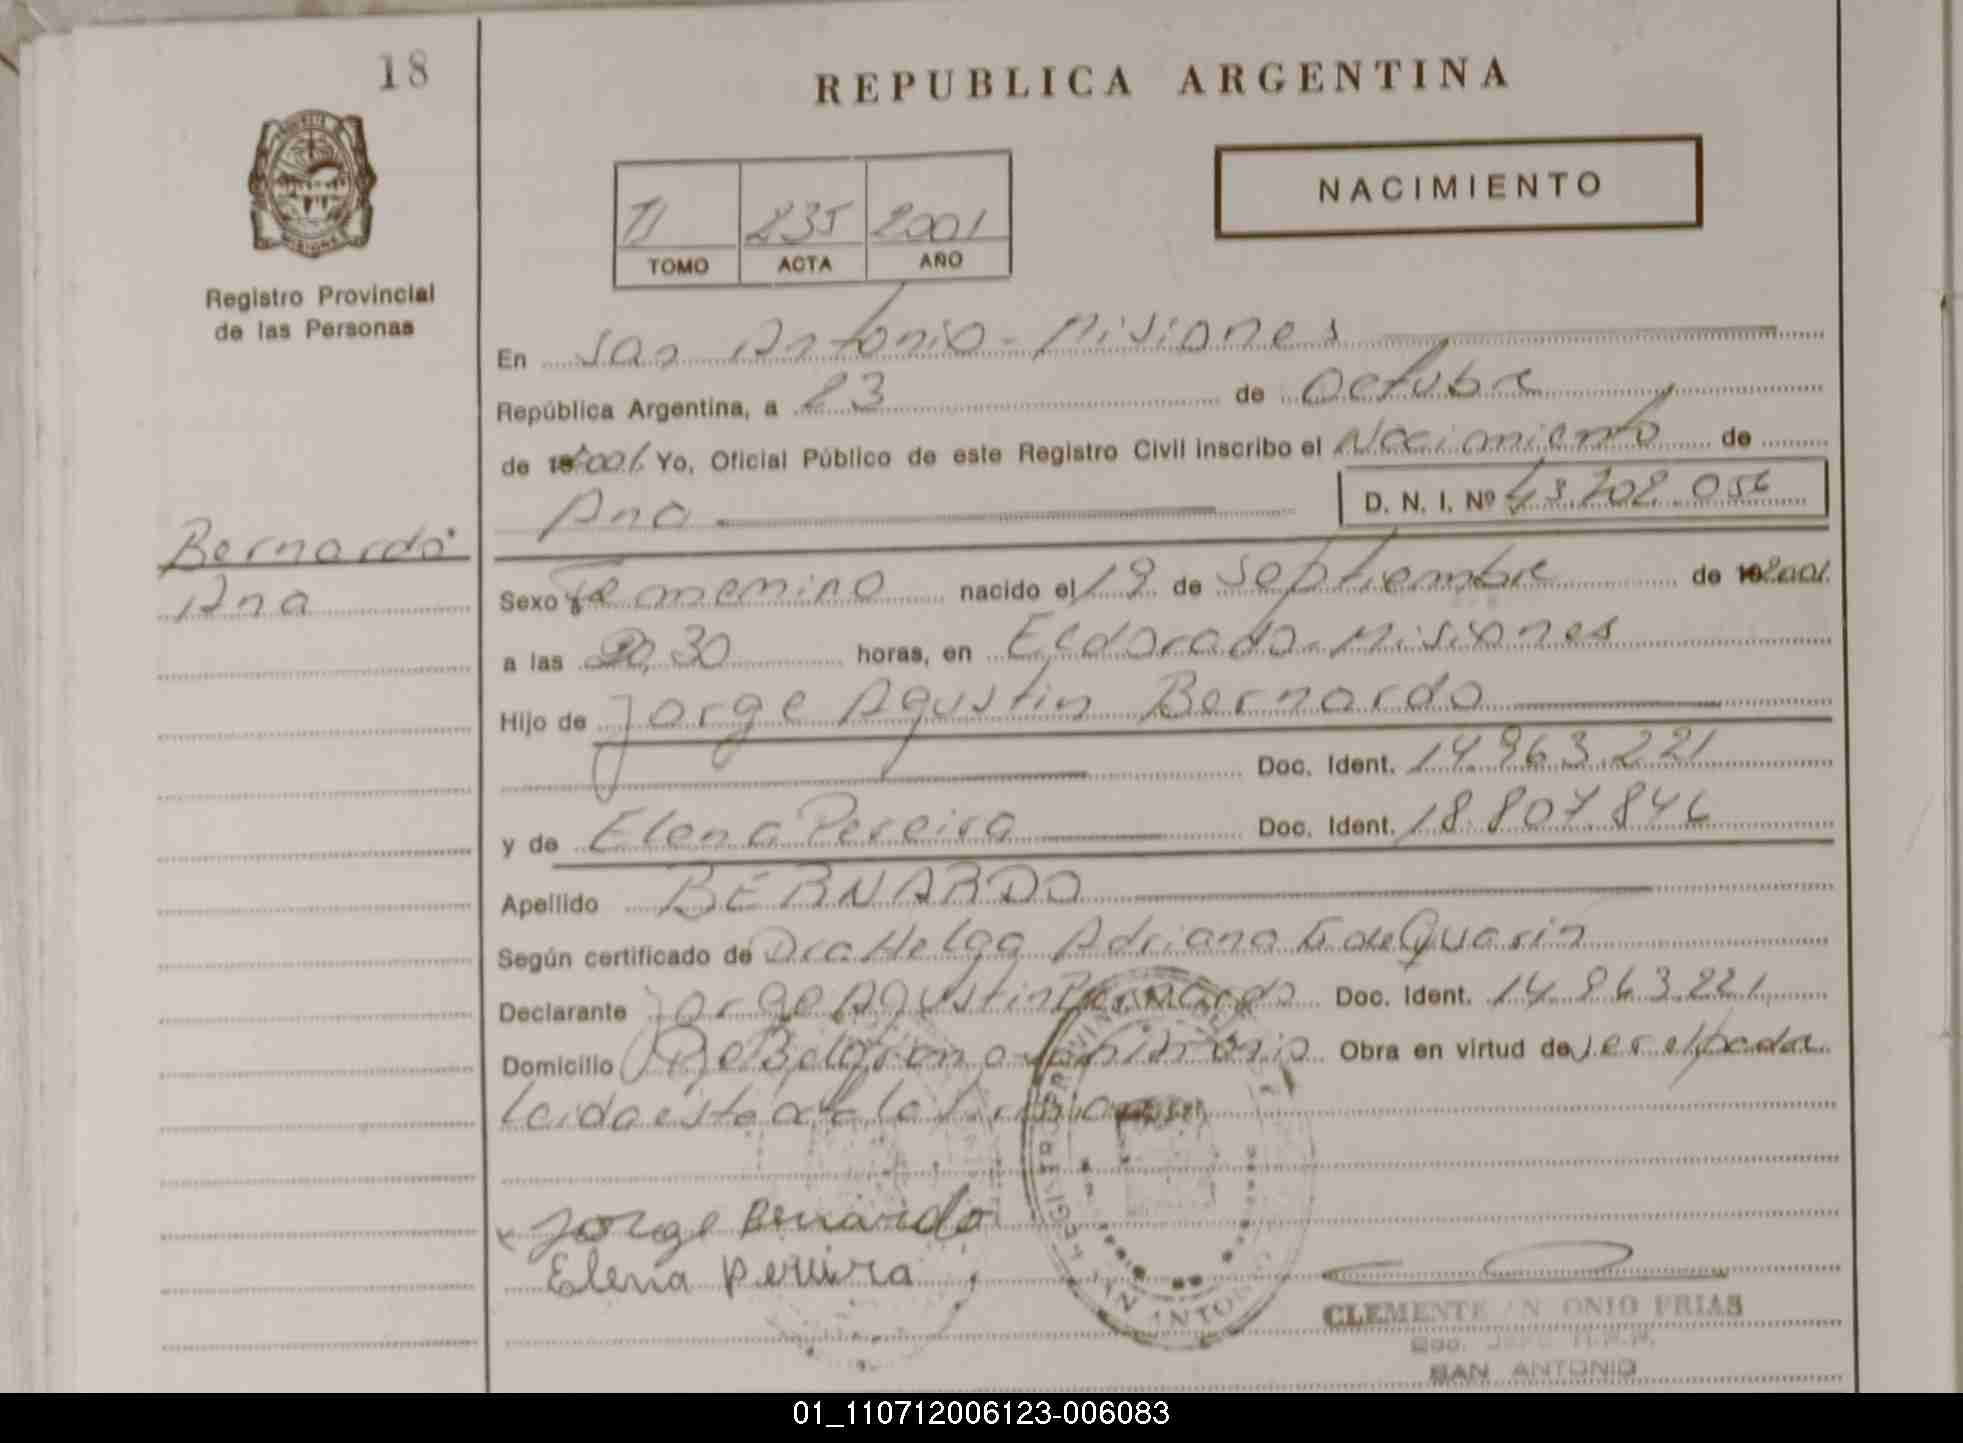 18
REPUBLICA ARGENTINA
NACIMIENTO
235 2001
TOMO ACTA AÑO
Registro Provincial
de las Personas
En San Antonio - Misiones
República Argentina, a 23 de Octubre
de 2001 Yo, Oficial Público de este Registro Civil inscribo el Nacimiento de
Ana D. N. I. Nº 43.202.056
Bernardo
Ana
Sexo Femenino nacido el 19 de Septiembre de 2001
a las 20,30 horas, en Eldorado - Misiones
Hijo de Jorge Agustin Bernardo
Doc. Ident. 14.963.221
y de Elena Pereira Doc. Ident. 18.807.846
Apellido BERNARDO
Según certificado de Dra Helga Adriana de Quarin
Declarante Jorge Agustin Bernardo Doc. Ident. 14.963.221
Domicilio Belgrano Obra en virtud de ser el padre
Leida esta acta la
Jorge Bernardo
Elena Pereira
SAN ANTONIO
CLEMENTE ANTONIO FRIAS
SAN ANTONIO
01_110712006123-006083